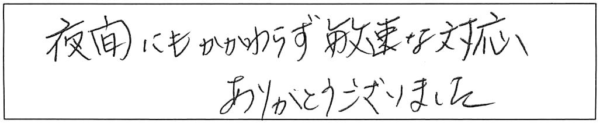 夜間にもかかわらず敏速な対応、
ありがとうございました